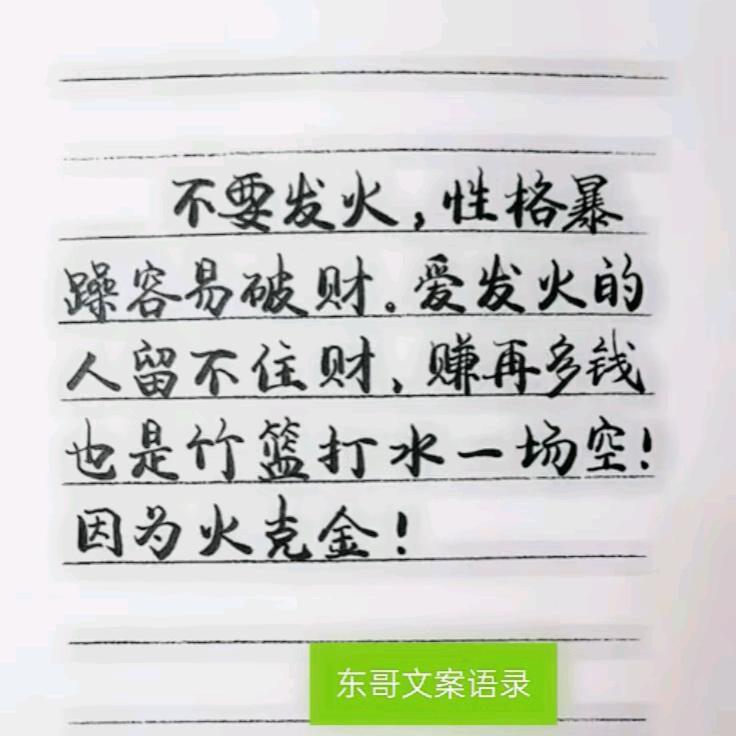 不要发火，性格暴
躁容易破财。爱发火的
人留不住财，赚再多钱
也是竹篮打水一场空！
因为火克金！
东哥文案语录